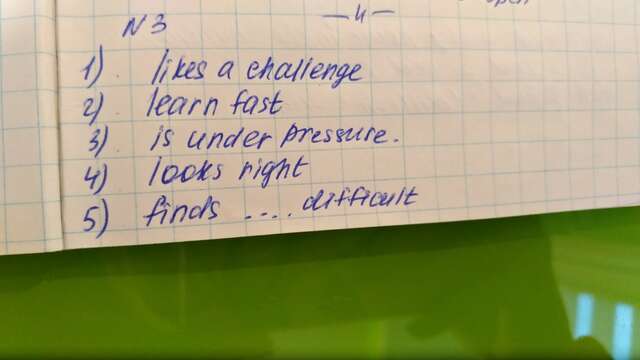 open
N3 — 4 —
1) likes a challenge
2) learn fast
3) is under pressure.
4) looks right
5) finds .... difficult